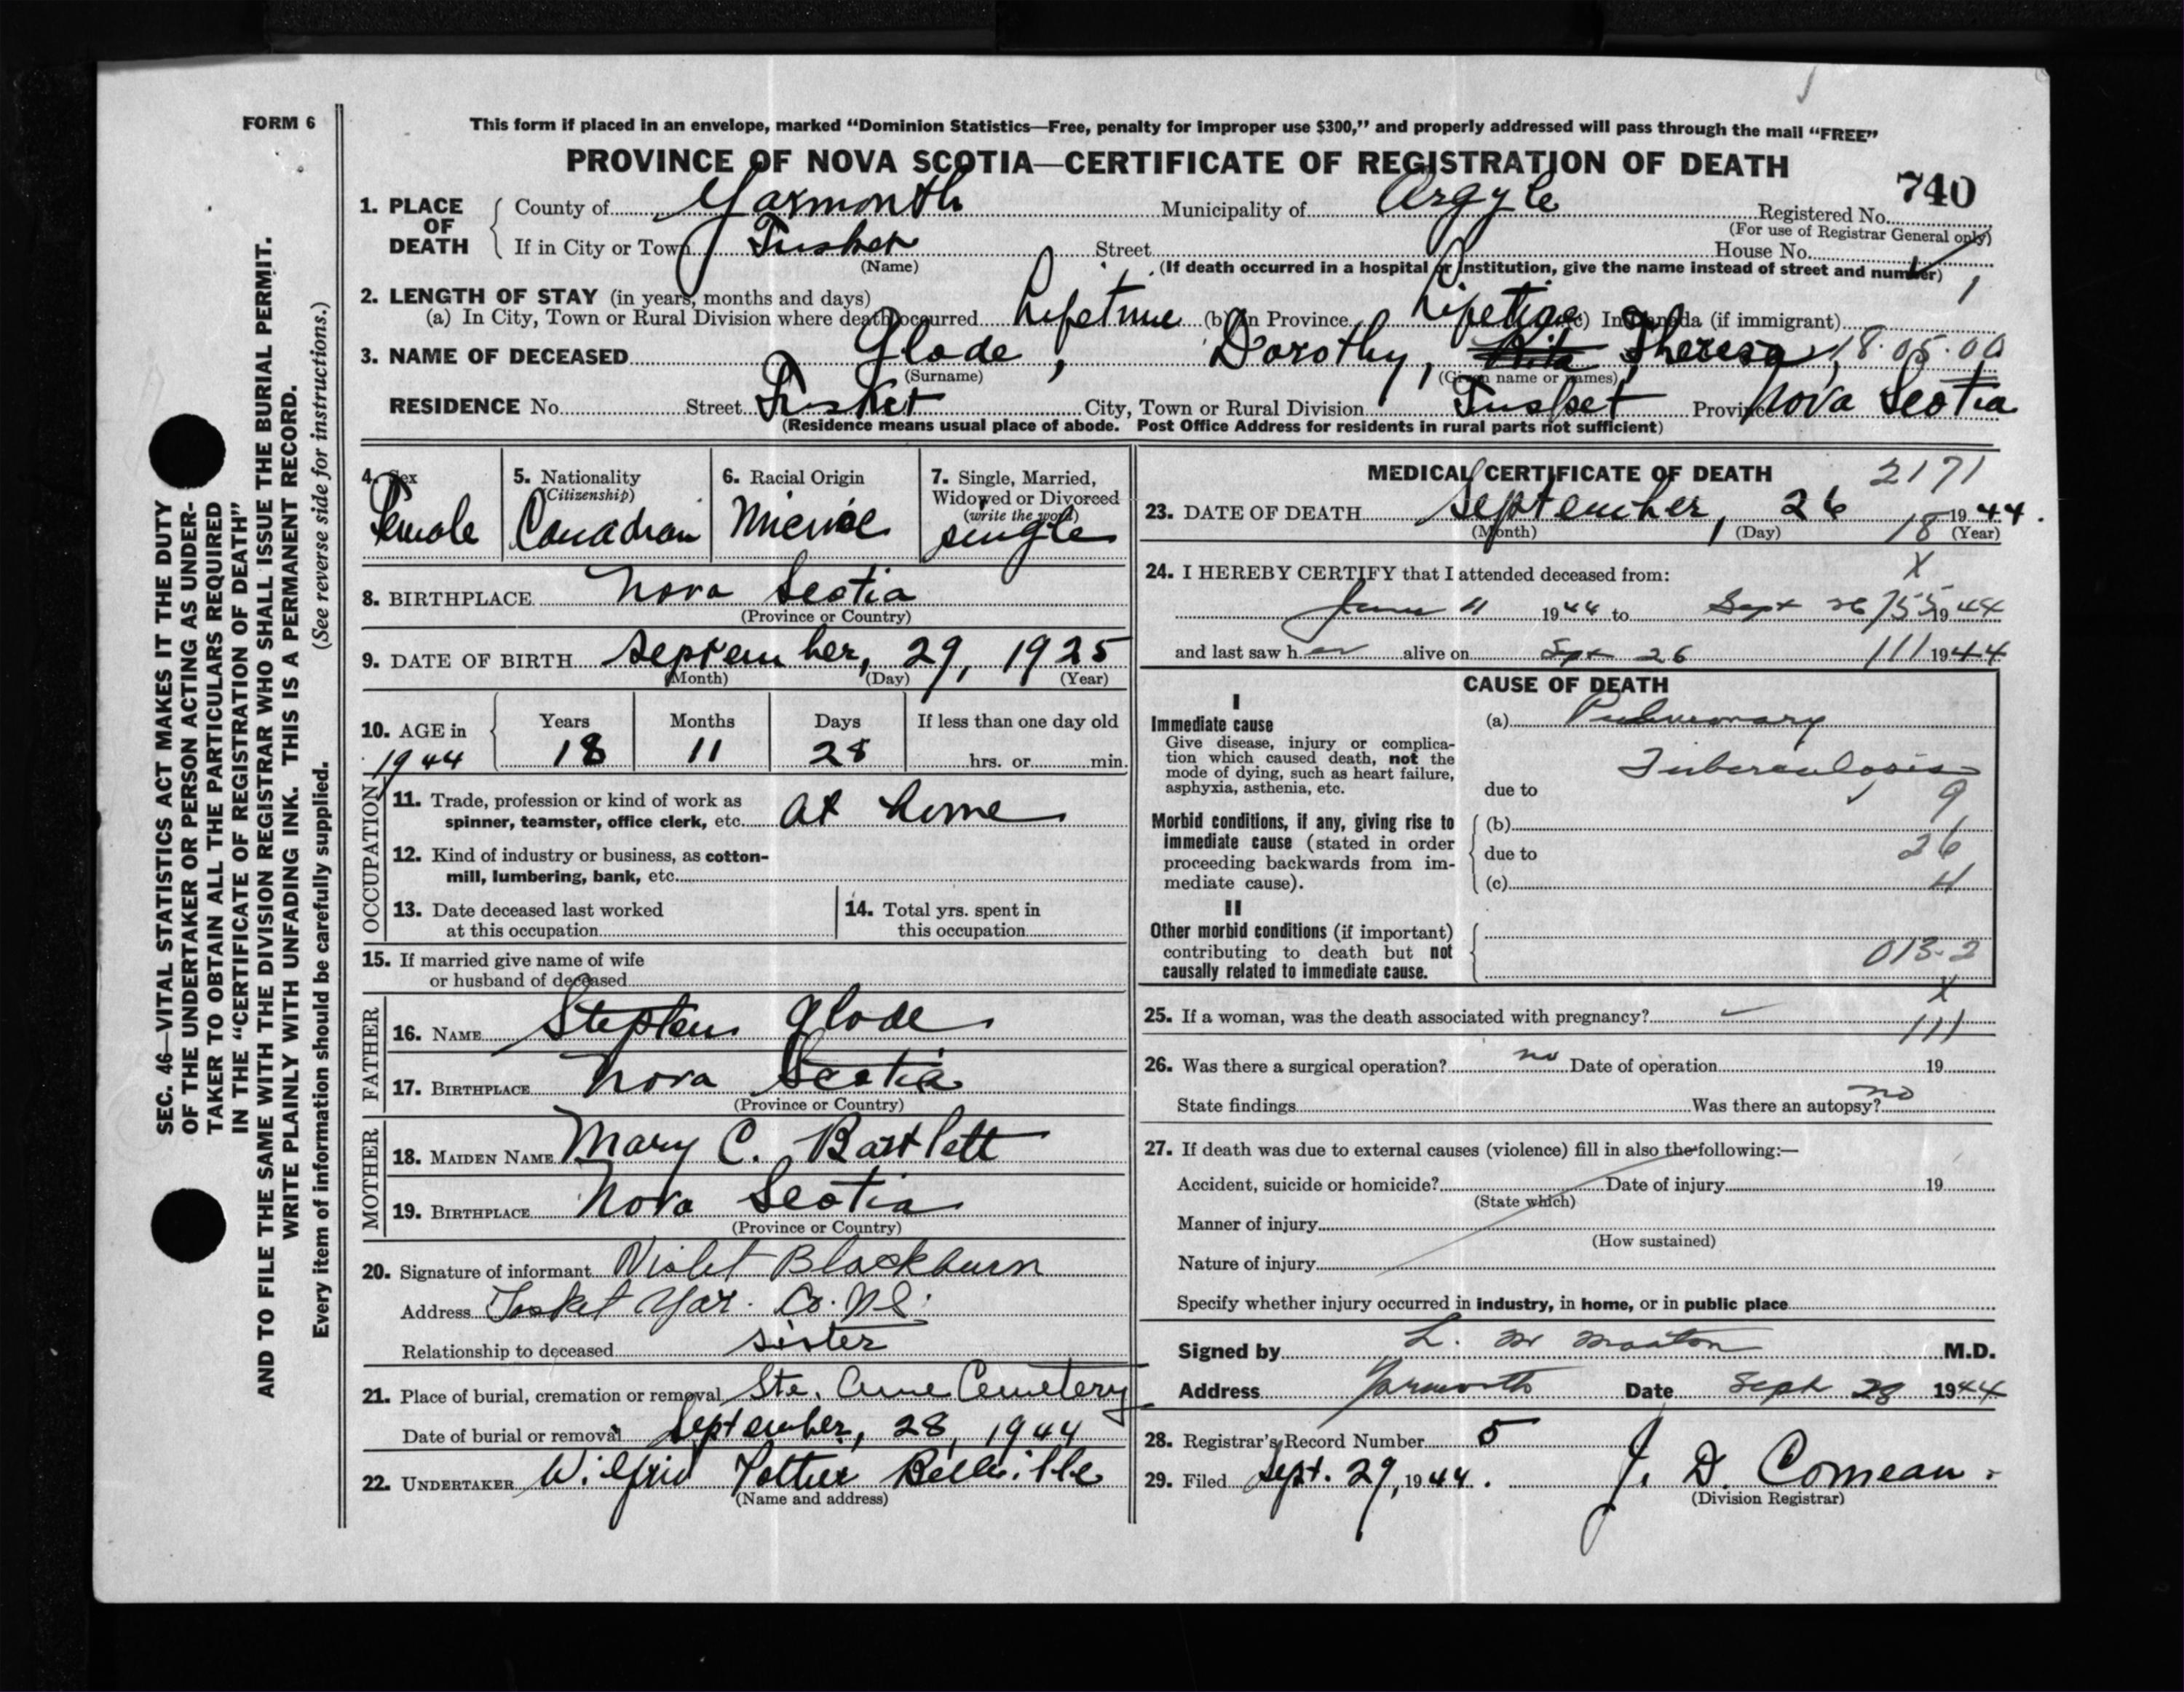 FORM 6
This form if placed in an envelope, marked "Dominion Statistics—Free, penalty for improper use $300," and properly addressed will pass through the mail "FREE"
PROVINCE OF NOVA SCOTIA—CERTIFICATE OF REGISTRATION OF DEATH
740
1. PLACE OF DEATH County of Yarmouth Municipality of Argyle Registered No.
(For use of Registrar General only)
If in City or Town Tusket Street House No.
(Name) (If death occurred in a hospital or institution, give the name instead of street and number)
1
2. LENGTH OF STAY (in years, months and days)
(a) In City, Town or Rural Division where death occurred Lifetime (b) In Province Lifetime (c) In Canada (if immigrant)
3. NAME OF DECEASED Glode, Dorothy, Rita Theresa, 18.05.00
(Surname) (Given name or names)
RESIDENCE No. Street Tusket City, Town or Rural Division Tusket Province Nova Scotia
(Residence means usual place of abode. Post Office Address for residents in rural parts not sufficient)
SEC. 46—VITAL STATISTICS ACT MAKES IT THE DUTY
OF THE UNDERTAKER OR PERSON ACTING AS UNDER-
TAKER TO OBTAIN ALL THE PARTICULARS REQUIRED
IN THE "CERTIFICATE OF REGISTRATION OF DEATH"
AND TO FILE THE SAME WITH THE DIVISION REGISTRAR WHO SHALL ISSUE THE BURIAL PERMIT.
WRITE PLAINLY WITH UNFADING INK. THIS IS A PERMANENT RECORD.
Every item of information should be carefully supplied. (See reverse side for instructions.)
4. Sex
Female
5. Nationality
(Citizenship)
Canadian
6. Racial Origin
7. Single, Married,
Widowed or Divorced
(write the word)
single
8. BIRTHPLACE Nova Scotia
(Province or Country)
9. DATE OF BIRTH September, 29, 1925
(Month) (Day) (Year)
10. AGE in 1944
Years Months Days If less than one day old
18 11 28 hrs. or min.
OCCUPATION
11. Trade, profession or kind of work as
spinner, teamster, office clerk, etc. At home
12. Kind of industry or business, as cotton-
mill, lumbering, bank, etc.
13. Date deceased last worked
at this occupation
14. Total yrs. spent in
this occupation
15. If married give name of wife
or husband of deceased
FATHER
16. NAME Stephen Glode
17. BIRTHPLACE Nova Scotia
(Province or Country)
MOTHER
18. MAIDEN NAME Mary C. Bartlett
19. BIRTHPLACE Nova Scotia
(Province or Country)
20. Signature of informant Violet Blackburn
Address Tusket Yar. Co. N.S.
Relationship to deceased sister
21. Place of burial, cremation or removal Ste. Anne Cemetery
Date of burial or removal September, 28, 1944
22. UNDERTAKER Wilfrid Pottier Belleville
(Name and address)
MEDICAL CERTIFICATE OF DEATH 2171
23. DATE OF DEATH September, 26 1944.
(Month) (Day) 18 (Year)
X
24. I HEREBY CERTIFY that I attended deceased from:
June 11 1944 to Sept 26 155 1944
and last saw her alive on Sept 26 111 1944
CAUSE OF DEATH
I
Immediate cause
Give disease, injury or complica-
tion which caused death, not the
mode of dying, such as heart failure,
asphyxia, asthenia, etc.
(a) Pulmonary
Tuberculosis
due to 9
Morbid conditions, if any, giving rise to
immediate cause (stated in order
proceeding backwards from im-
mediate cause).
(b)
due to 26
(c) 4
II
Other morbid conditions (if important)
contributing to death but not
causally related to immediate cause.
013-2
X
25. If a woman, was the death associated with pregnancy?
111
26. Was there a surgical operation? no Date of operation 19
State findings Was there an autopsy? no
27. If death was due to external causes (violence) fill in also the following:—
Accident, suicide or homicide? Date of injury 19
(State which)
Manner of injury
(How sustained)
Nature of injury
Specify whether injury occurred in industry, in home, or in public place
Signed by L. M. Morton M.D.
Address Yarmouth Date Sept 28 1944
28. Registrar's Record Number 5
29. Filed Sept. 29, 1944. J. D. Comeau.
(Division Registrar)